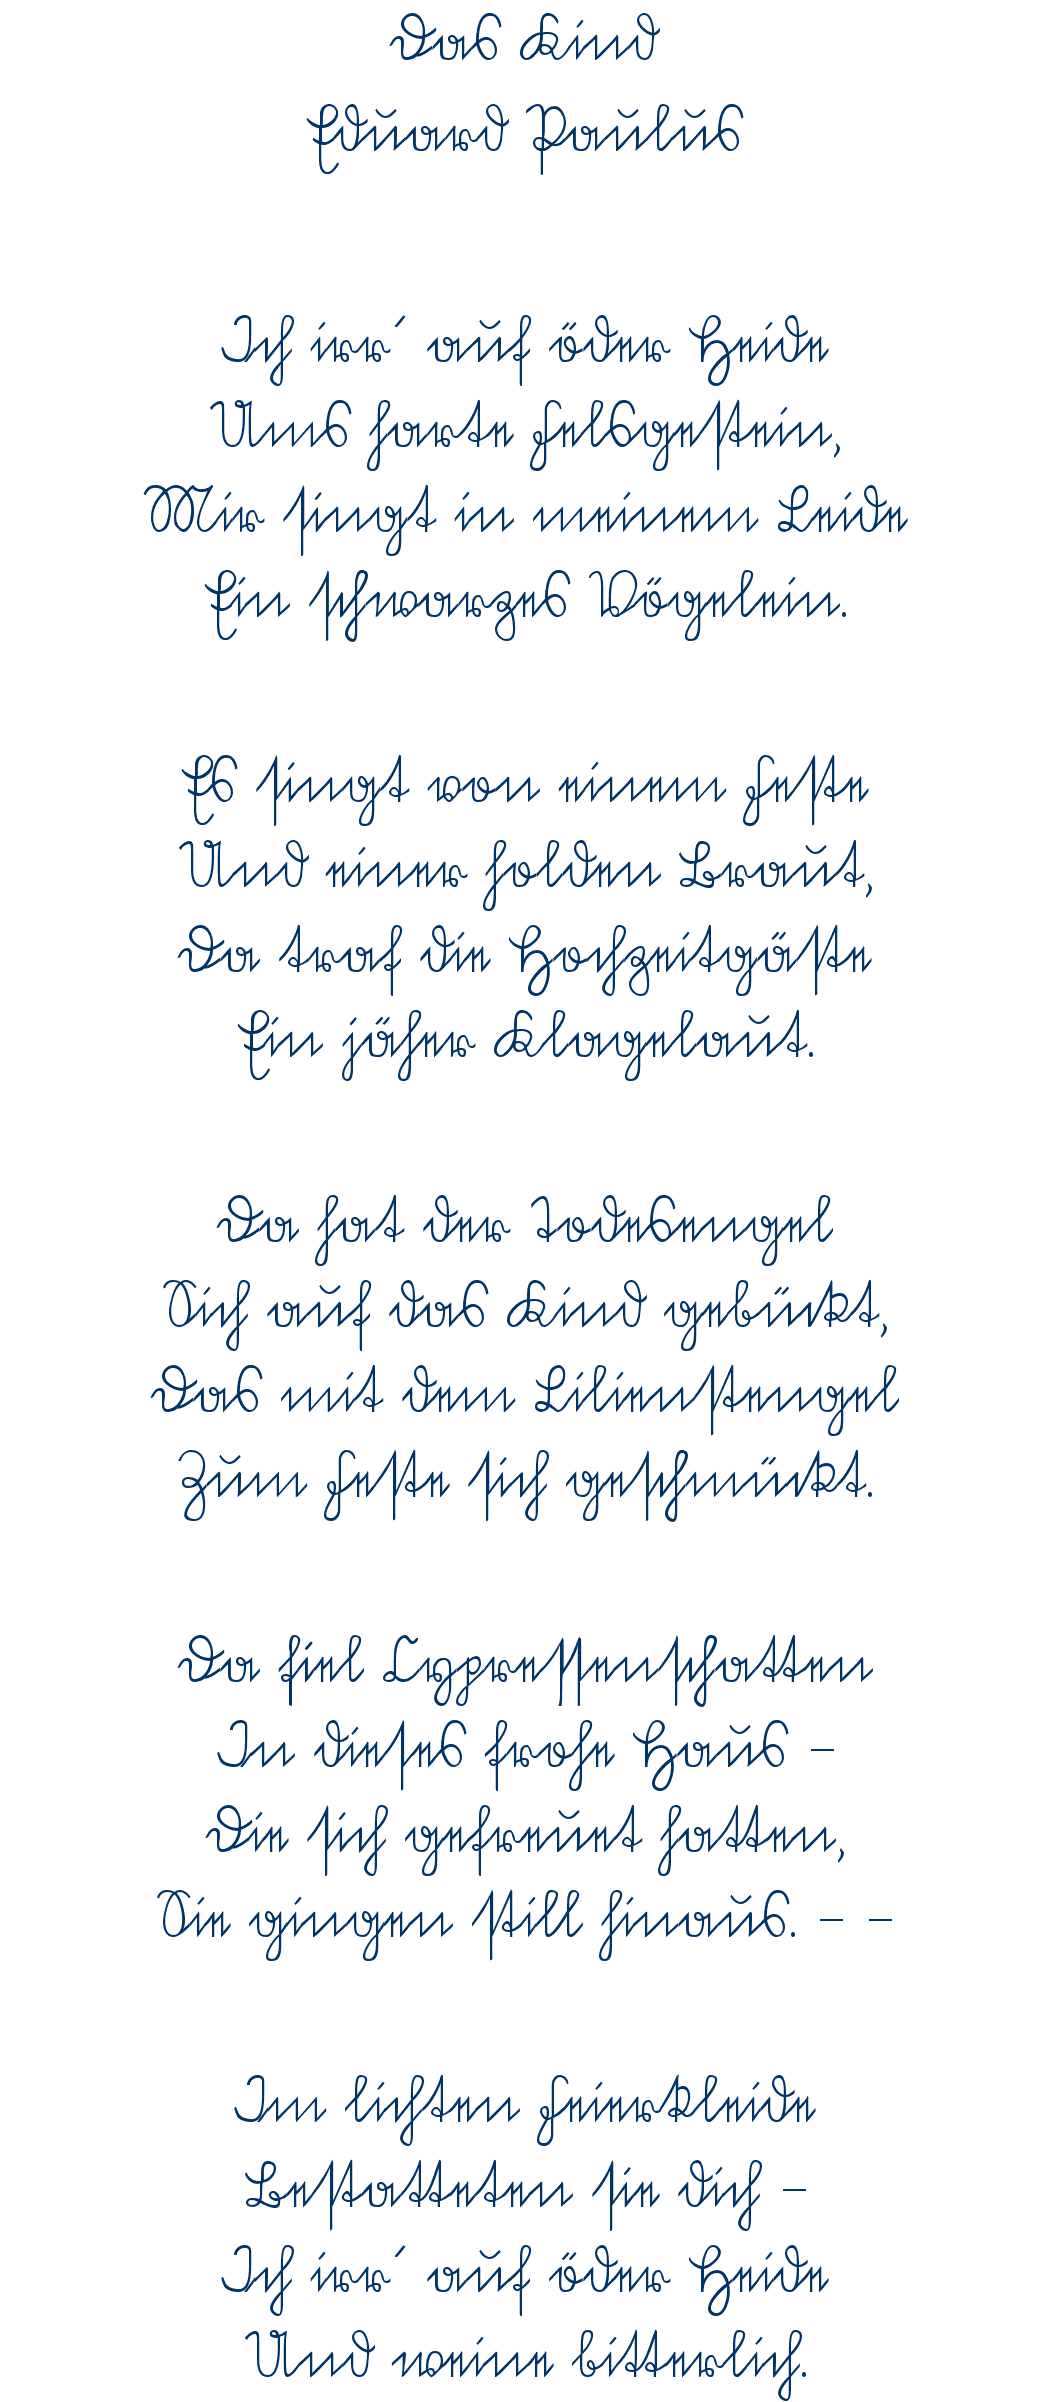 Das Kind
Eduard Paulus
Ich irr´ auf öder Heide
Ums harte Felsgestein,
Mir singt in meinem Leide
Ein schwarzes Vögelein.
Es singt von einem Feste
Und einer holden Braut,
Da traf die Hochzeitgäste
Ein jäher Klagelaut.
Da hat der Todesengel
Sich auf das Kind gebückt,
Das mit dem Lilienstengel
Zum Feste sich geschmückt.
Da fiel Cypressenschatten
In dieses frohe Haus –
Die sich gefreuet hatten,
Sie gingen still hinaus. – –
Im lichten Feierkleide
Bestatteten sie dich –
Ich irr´ auf öder Heide
Und weine bitterlich.